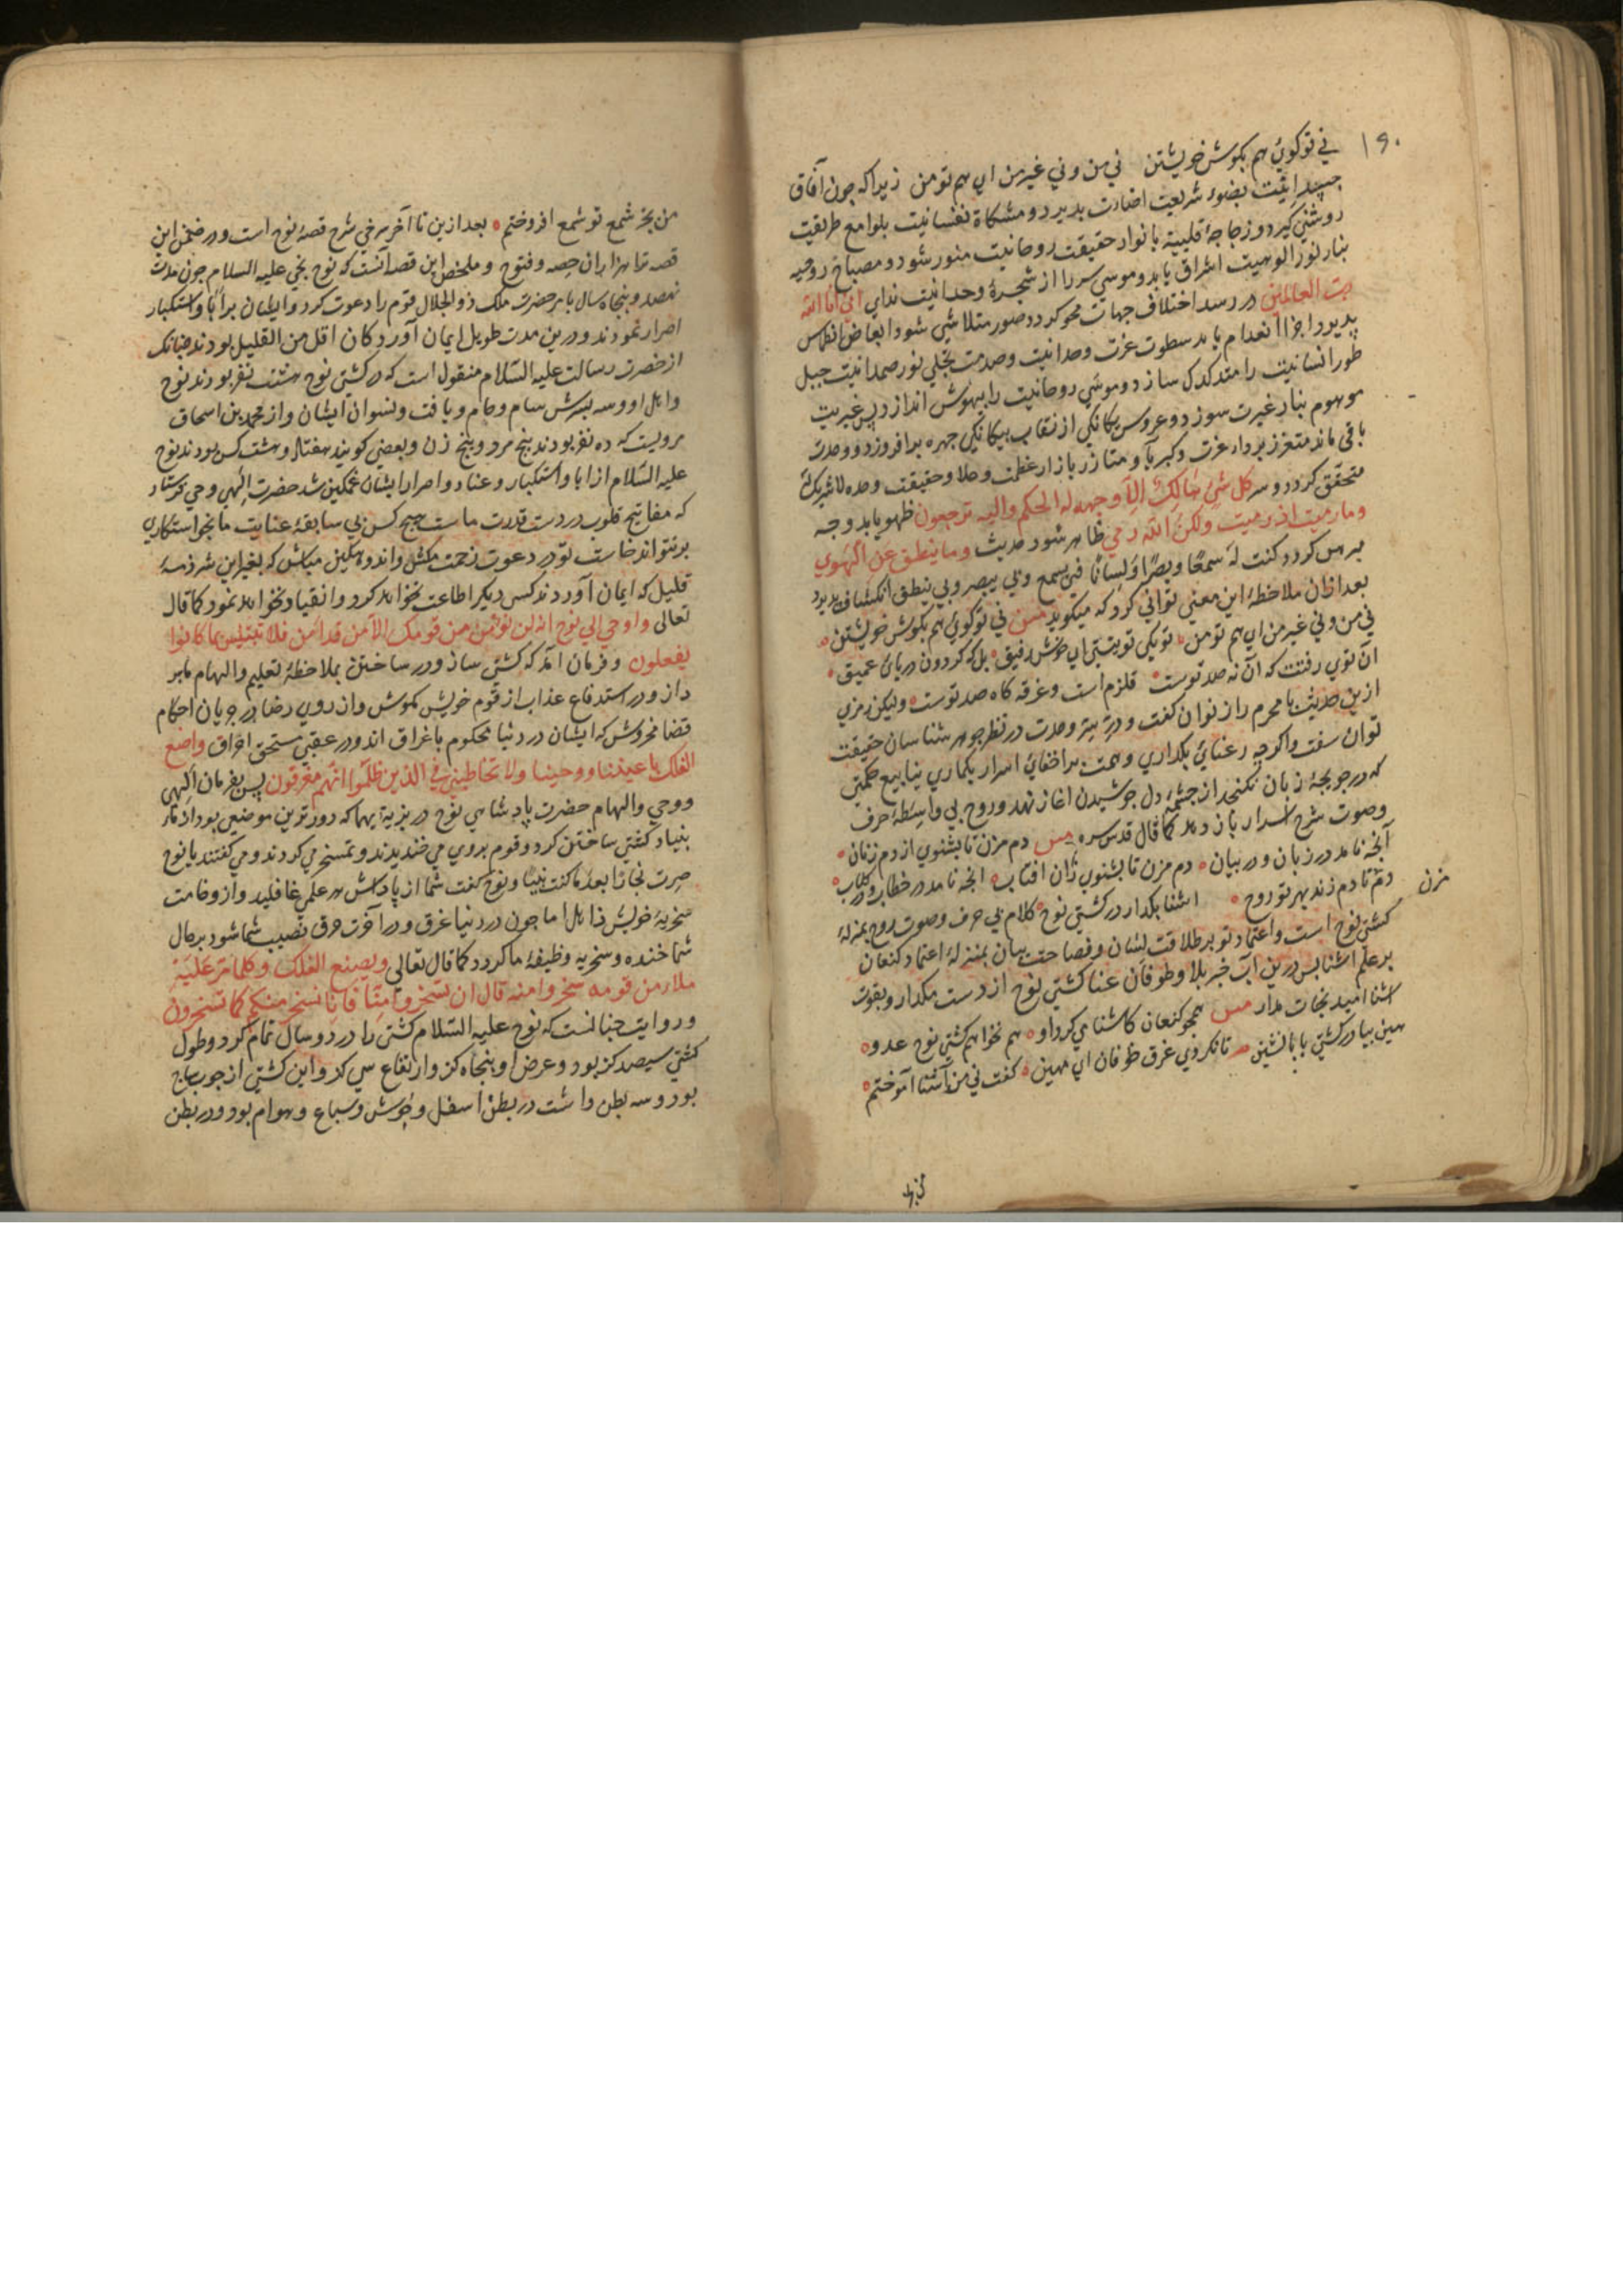 ۱۹۰
ني توكويي هم بكوش خويشتن ني من و ني غيرمن اي هم تو من زيراكه چون آفاق
بضوء شريعت اضاءت پديرد و مشكاة نفسانيت بلوامع طريقت
روشني كيرد و زجاجهٔ قلبيه بانوار حقيقت روحانيت منور شود و مصباح روحيه
بنار نور الوهيت اشراق يابد و موسي سر را از شجرهٔ وحدانيت نداي اني انا الله
رب العالمين در رسد اختلاف جهات محو كردد و صور متلاشي شود ابعاض انطماس
پديرد و اجزا انعدام يابد سطوت عزت وحدانيت و صدمت تجلي نور صمدانيت جبل
طور انسانيت را متدكدك سازد و موسي روحانيت را بيهوش اندازد پس غيريت
موهوم بنار غيرت سوزد و عروس يكانكي از نقاب بيكانكي چهره برافروزد و وحدت
باقي ماند متعزز برداء عزت و كبريا و متازر بازار عظمت و علا و حقيقت وحده لا شريك له
متحقق كردد و سر كل شئ هالك الا وجهه له الحكم واليه ترجعون ظهور يابد و وجه
وما رميت اذ رميت ولكن الله رمي ظاهر شود حديث وما ينطق عن الهوي
مبرهن كردد كنت له سمعا وبصرا ولسانا فبي يسمع وبي يبصر وبي ينطق انكشاف پديرد
بعد ازان ملاحظهٔ اين معني تواني كرد كه ميكويد مس ني توكويي هم بكوش خويشتن
ني من و ني غيرمن اي هم تو من تو يكي تو نيستي اي خوش رفيق بلكه كردون درياي عميق
آن توي زفتت كه آن نه صد توست قلزم است و غرقه كاه صد توست وليكن رمزي
ازين حديث با محرم راز توان كفت و در بيتهٔ وحدت در نظر جوهر شناسان حقيقت
توان سفت و اكرچه رعنايي بكداري و همت بر اخفاي اسرار بكماري ينابيع حكمتي
كه در جويچهٔ زبان نكنجد از چشمهٔ دل جوشيدن اغاز نهد و روح بي واسطهٔ حرف
و صوت شرح اسرار باز دهد كما قال قدس سره مس دم مزن تا بشنوي از دم زنان
آنچه نامد در زبان و در بيان دم مزن تا بشنوي زان افتاب انچه نامد در خطاب و در كتاب
دم مزن تا دم زند بهر تو روح اشنا بكدار در كشتي نوح كلام بي حرف و صوت روح بمنزلهٔ
كشتي نوح است و اعتماد تو بر طلاقت لسان و فصاحت بيان بمنزلهٔ اعتماد كنعان
بر علم اشنا پس درين آب خبر بلا و طوفان عنا كشتي نوح از دست مكدار و بقوت
اشنا اميد نجات مدار مس همچو كنعان كاشنا مي كرد او هم نخواهم كشتي نوح عدو
هين بيا در كشتي بابا نشين تا نكردي غرق طوفان اي مهين كفت ني من آشنا آموختم
من بجز شمع تو شمع افروختم بعد ازين تا آخر سرخي شرح قصهٔ نوح است و در ضمن اين
قصه ترا هزاران حصه و فتوح و ملخص اين قصه آنست كه نوح نجي عليه السلام چون مدت
نهصد و پنجاه سال بامر حضرت ملك ذو الجلال قوم را دعوت كرد و ايشان برابا و استكبار
اصرار نمودند و درين مدت طويل ايمان آورد كان اقل من القليل بودند چنانكه
از حضرت رسالت عليه السلام منقول است كه در كشتي نوح هشت نفر بودند نوح
و اهل او و سه پسرش سام و حام و يافت و نسوان ايشان و از محمد بن اسحاق
مرويست كه ده نفر بودند پنج مرد و پنج زن و بعضي كويند هفتاد و هشت كس بودند نوح
عليه السلام از ابا و استكبار و عناد و اصرار ايشان غمكين شد حضرت الهي وحي فرستاد
كه مفاتيح قلوب در دست قدرت ماست هيچ كس بي سابقهٔ عنايت ما بخواستكاري
برنتواند خاست تو در دعوت زحمت مكش و اندوهكين مباش كه بغير اين شرذمهٔ
قليل كه ايمان آوردند كس ديكر اطاعت نخواهد كرد و انقياد نخواهد نمود كما قال
تعالي واوحي الي نوح انه لن يؤمن من قومك الا من قد امن فلا تبتئس بما كانوا
يفعلون و فرمان آمد كه كشتي ساز و در ساختن بملاحظهٔ تعليم و الهام ما بر
داز و در استدفاع عذاب از قوم خويش كوش و از روي رضا در جريان احكام
قضا مخروش كه ايشان در دنيا محكوم باغراق اند و در عقبي مستحق احراق واصنع
الفلك باعيننا ووحينا ولا تخاطبني في الذين ظلموا انهم مغرقون پس بفرمان الهي
و وحي و الهام حضرت پادشاهي نوح در بريه كه دور ترين موضعي بود از
بنياد كشتي ساختن كرد و قوم بروي مي خنديدند و تمسخر مي كردند و مي كفتند يا نوح
صرت نجارا بعد ما كنت نبيا و نوح كفت شما از پاداش هر عملي غافليد و از وخامت
سخريهٔ خويش ذاهل اما چون در دنيا غرق و در آخرت حرق نصيب شما شود بر حال
شما خنده و سخريه وظيفهٔ ما كردد كما قال تعالي ويصنع الفلك وكلما مر عليه
ملاء من قومه سخروا منه قال ان تسخروا منا فانا نسخر منكم كما تسخرون
و روايت چنانست كه نوح عليه السلام كشتي را در دو سال تمام كرد و طول
كشتي سيصد كز بود و عرض او پنجاه كز و ارتفاع سي كز و اين كشتي از چوب ساج
بود و سه بطن داشت در بطن اسفل وحوش و سباع و هوام بود و در بطن